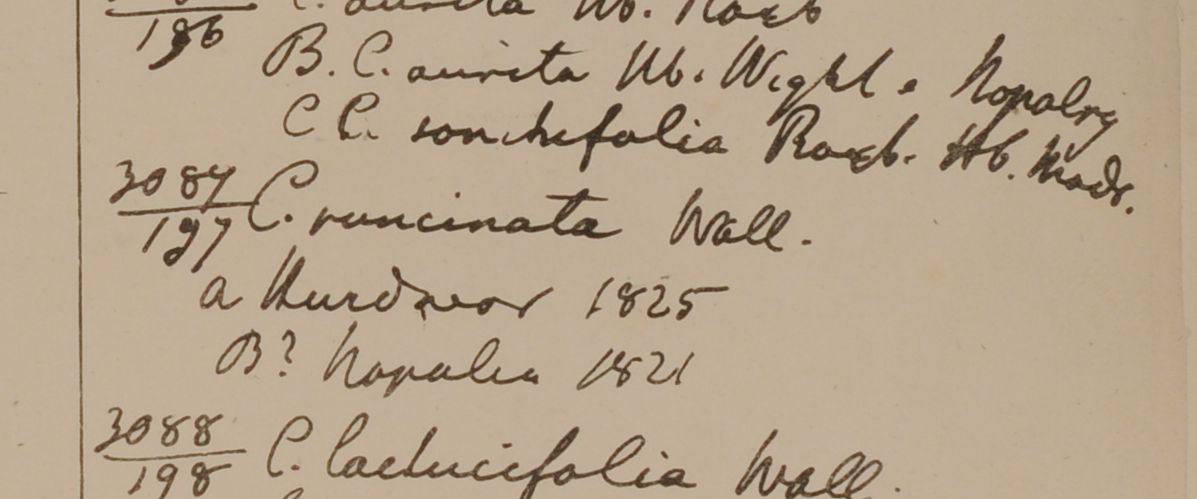 196 C. aurita Hb. Roxb
B. C. aurita Hb. Wight.
C C. sonchifolia Roxb. Hb. Mads.
3087
197 C. runcinata Wall.
a Hurdwar 1825
B? Napalia 1821
3088
198 C. lactucifolia Wall.